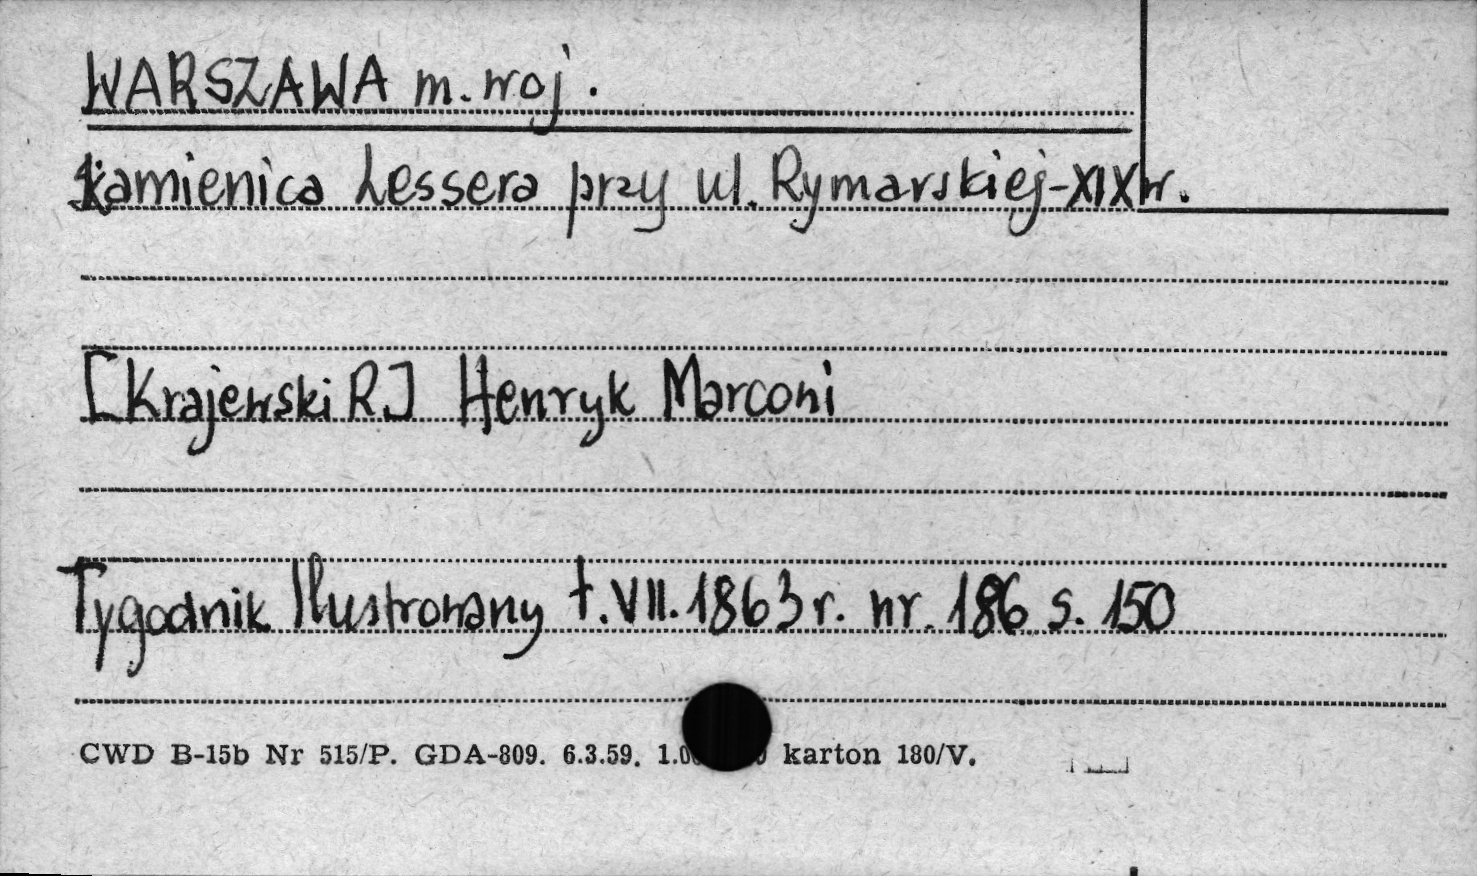 WARSZAWA m. woj.
kamienica Lessera przy ul. Rymarskiej - XIX w.
[Krajewski R] Henryk Marconi
Tygodnik Ilustrowany t. VII. 1863 r. nr. 186 s. 150
CWD B-15b Nr 515/P. GDA-809. 6.3.59. karton 180/V.